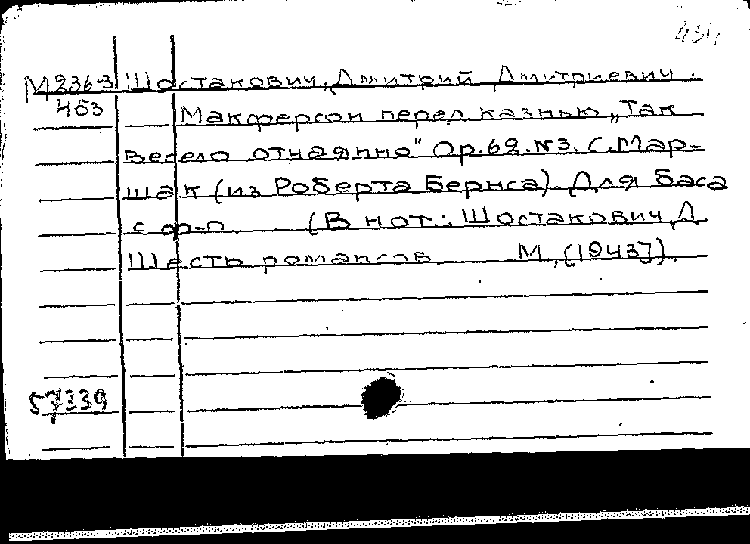 М 236-3 Шостакович, Дмитрий Дмитриевич.
463 Макферсон перед казнью „Так
весело отчаянно" Ор. 62. №3. С. Мар-
шак (из Роберта Бернса). Для баса
с ф-п. (В нот.: Шостакович, Д.
Шесть романсов М., [1943]).
57339